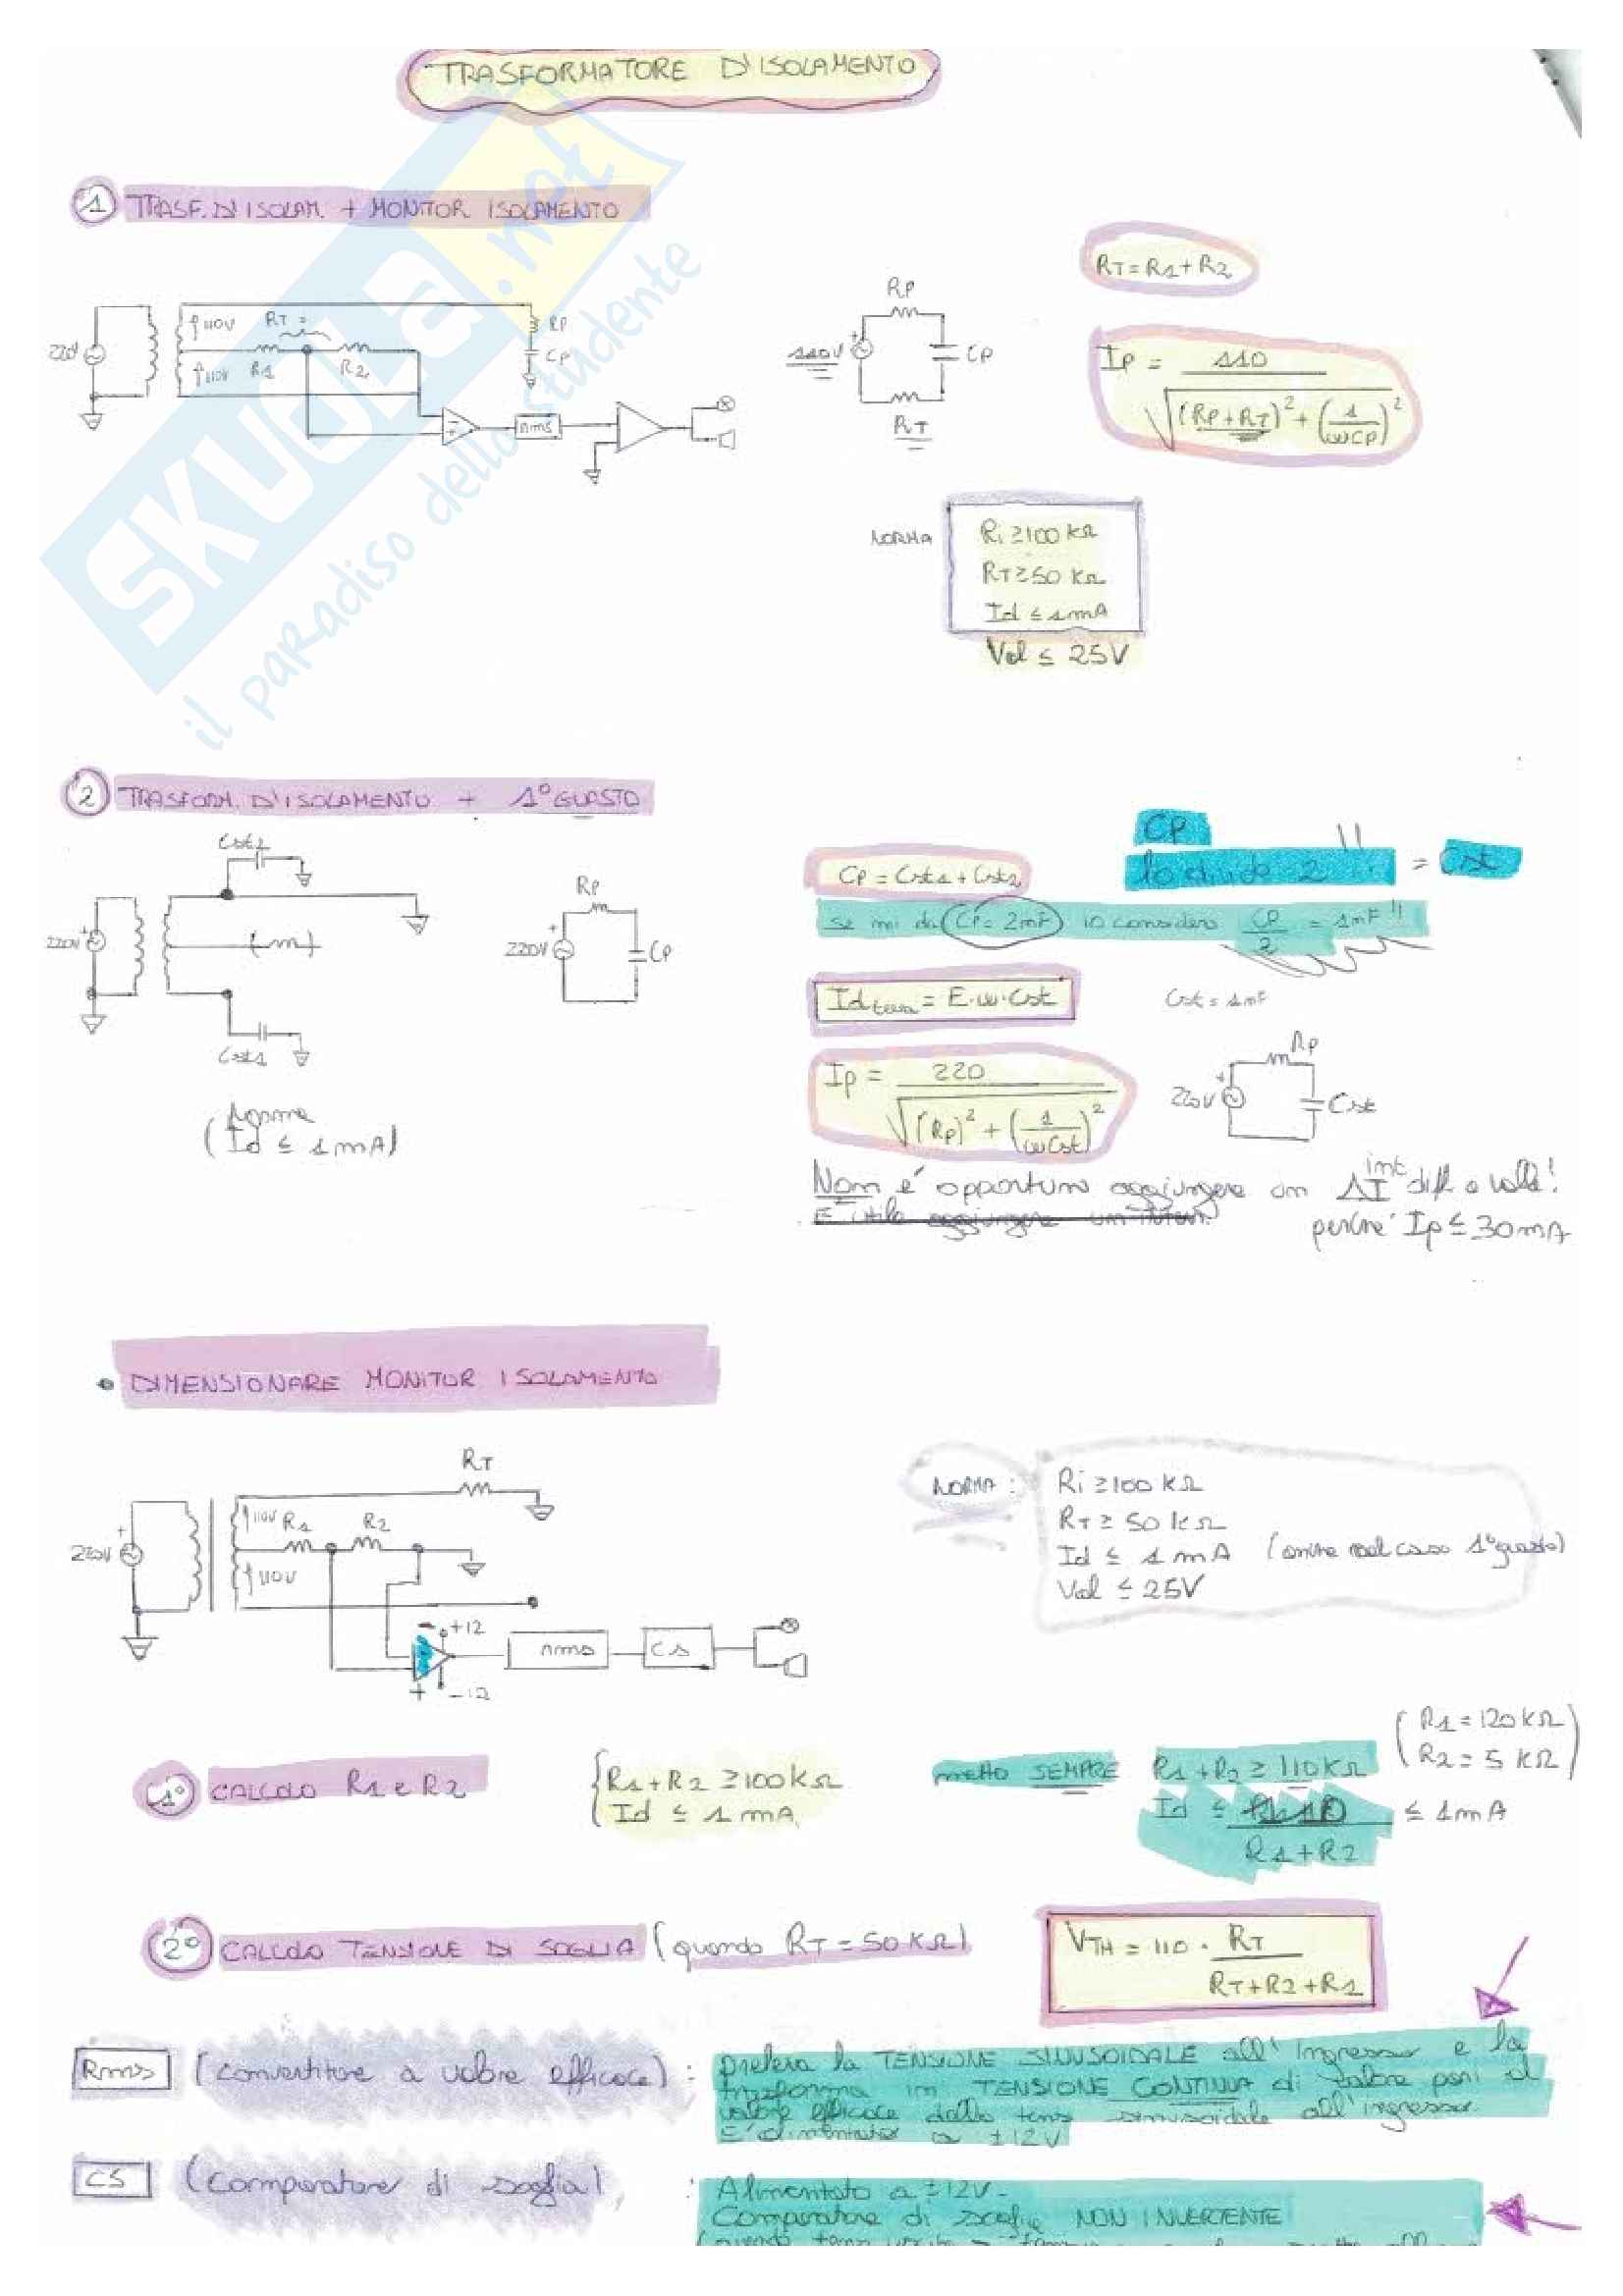 TRASFORMATORE D'ISOLAMENTO
SKUOLA.net
il paradiso dello studente
1 TRASF. D'ISOLAM. + MONITOR ISOLAMENTO
RT = R1 + R2
220V
110V
110V
RT =
R1
R2
RP
CP
rms
RP
110V
CP
RT
IP = 110 / √((RP+RT)² + (1/ωCP)²)
NORMA
Ri ≥ 100 kΩ
RT ≥ 50 kΩ
Id ≤ 1mA
Vd ≤ 25V
2 TRASFORM. D'ISOLAMENTO + 1° GUASTO
Cst2
220V
Cst1
RP
220V
CP
(Norma
Id ≤ 1mA)
CP = Cst1 + Cst2
CP
lo divido 2 !! = Cst
Se mi da CP = 2mF io considero CP/2 = 1mF!!
Id terra = E·ω·Cst
Cst = 1mF
Ip = 220 / √((Rp)² + (1/ωCst)²)
RP
220V
Cst
Non é opportuno aggiungere un int diff a valle!
E' utile aggiungere un
perché Ip ≤ 30mA
• DIMENSIONARE MONITOR ISOLAMENTO
RT
220V
110V
R1
R2
110V
- +12
+ -12
rms
CS
NORMA :
Ri ≥ 100 kΩ
RT ≥ 50 kΩ
Id ≤ 1 mA (anche nel caso 1° guasto)
Vd ≤ 25V
1° CALCOLO R1 e R2
R1 + R2 ≥ 100kΩ
Id ≤ 1 mA
metto SEMPRE R1 + R2 ≥ 110kΩ
(R1 = 120 kΩ
R2 = 5 kΩ)
Id ≤ / R1+R2 ≤ 1mA
2° CALCOLO TENSIONE DI SOGLIA (quando RT = 50KΩ)
VTH = 110 · RT / RT+R2+R1
Rms (convertitore a valore efficace) : preleva la TENSIONE SINUSOIDALE all'ingresso e la
trasforma in TENSIONE CONTINUA di valore pari al
valore efficace della tens sinusoidale all'ingresso.
E' alimentato a ±12V
CS (comparatore di soglia) : Alimentato a ±12V.
Comparatore di soglia NON INVERTENTE